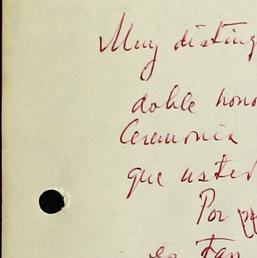 Muy disting
doble hono
Ceremonia
que usted
Por
es tan